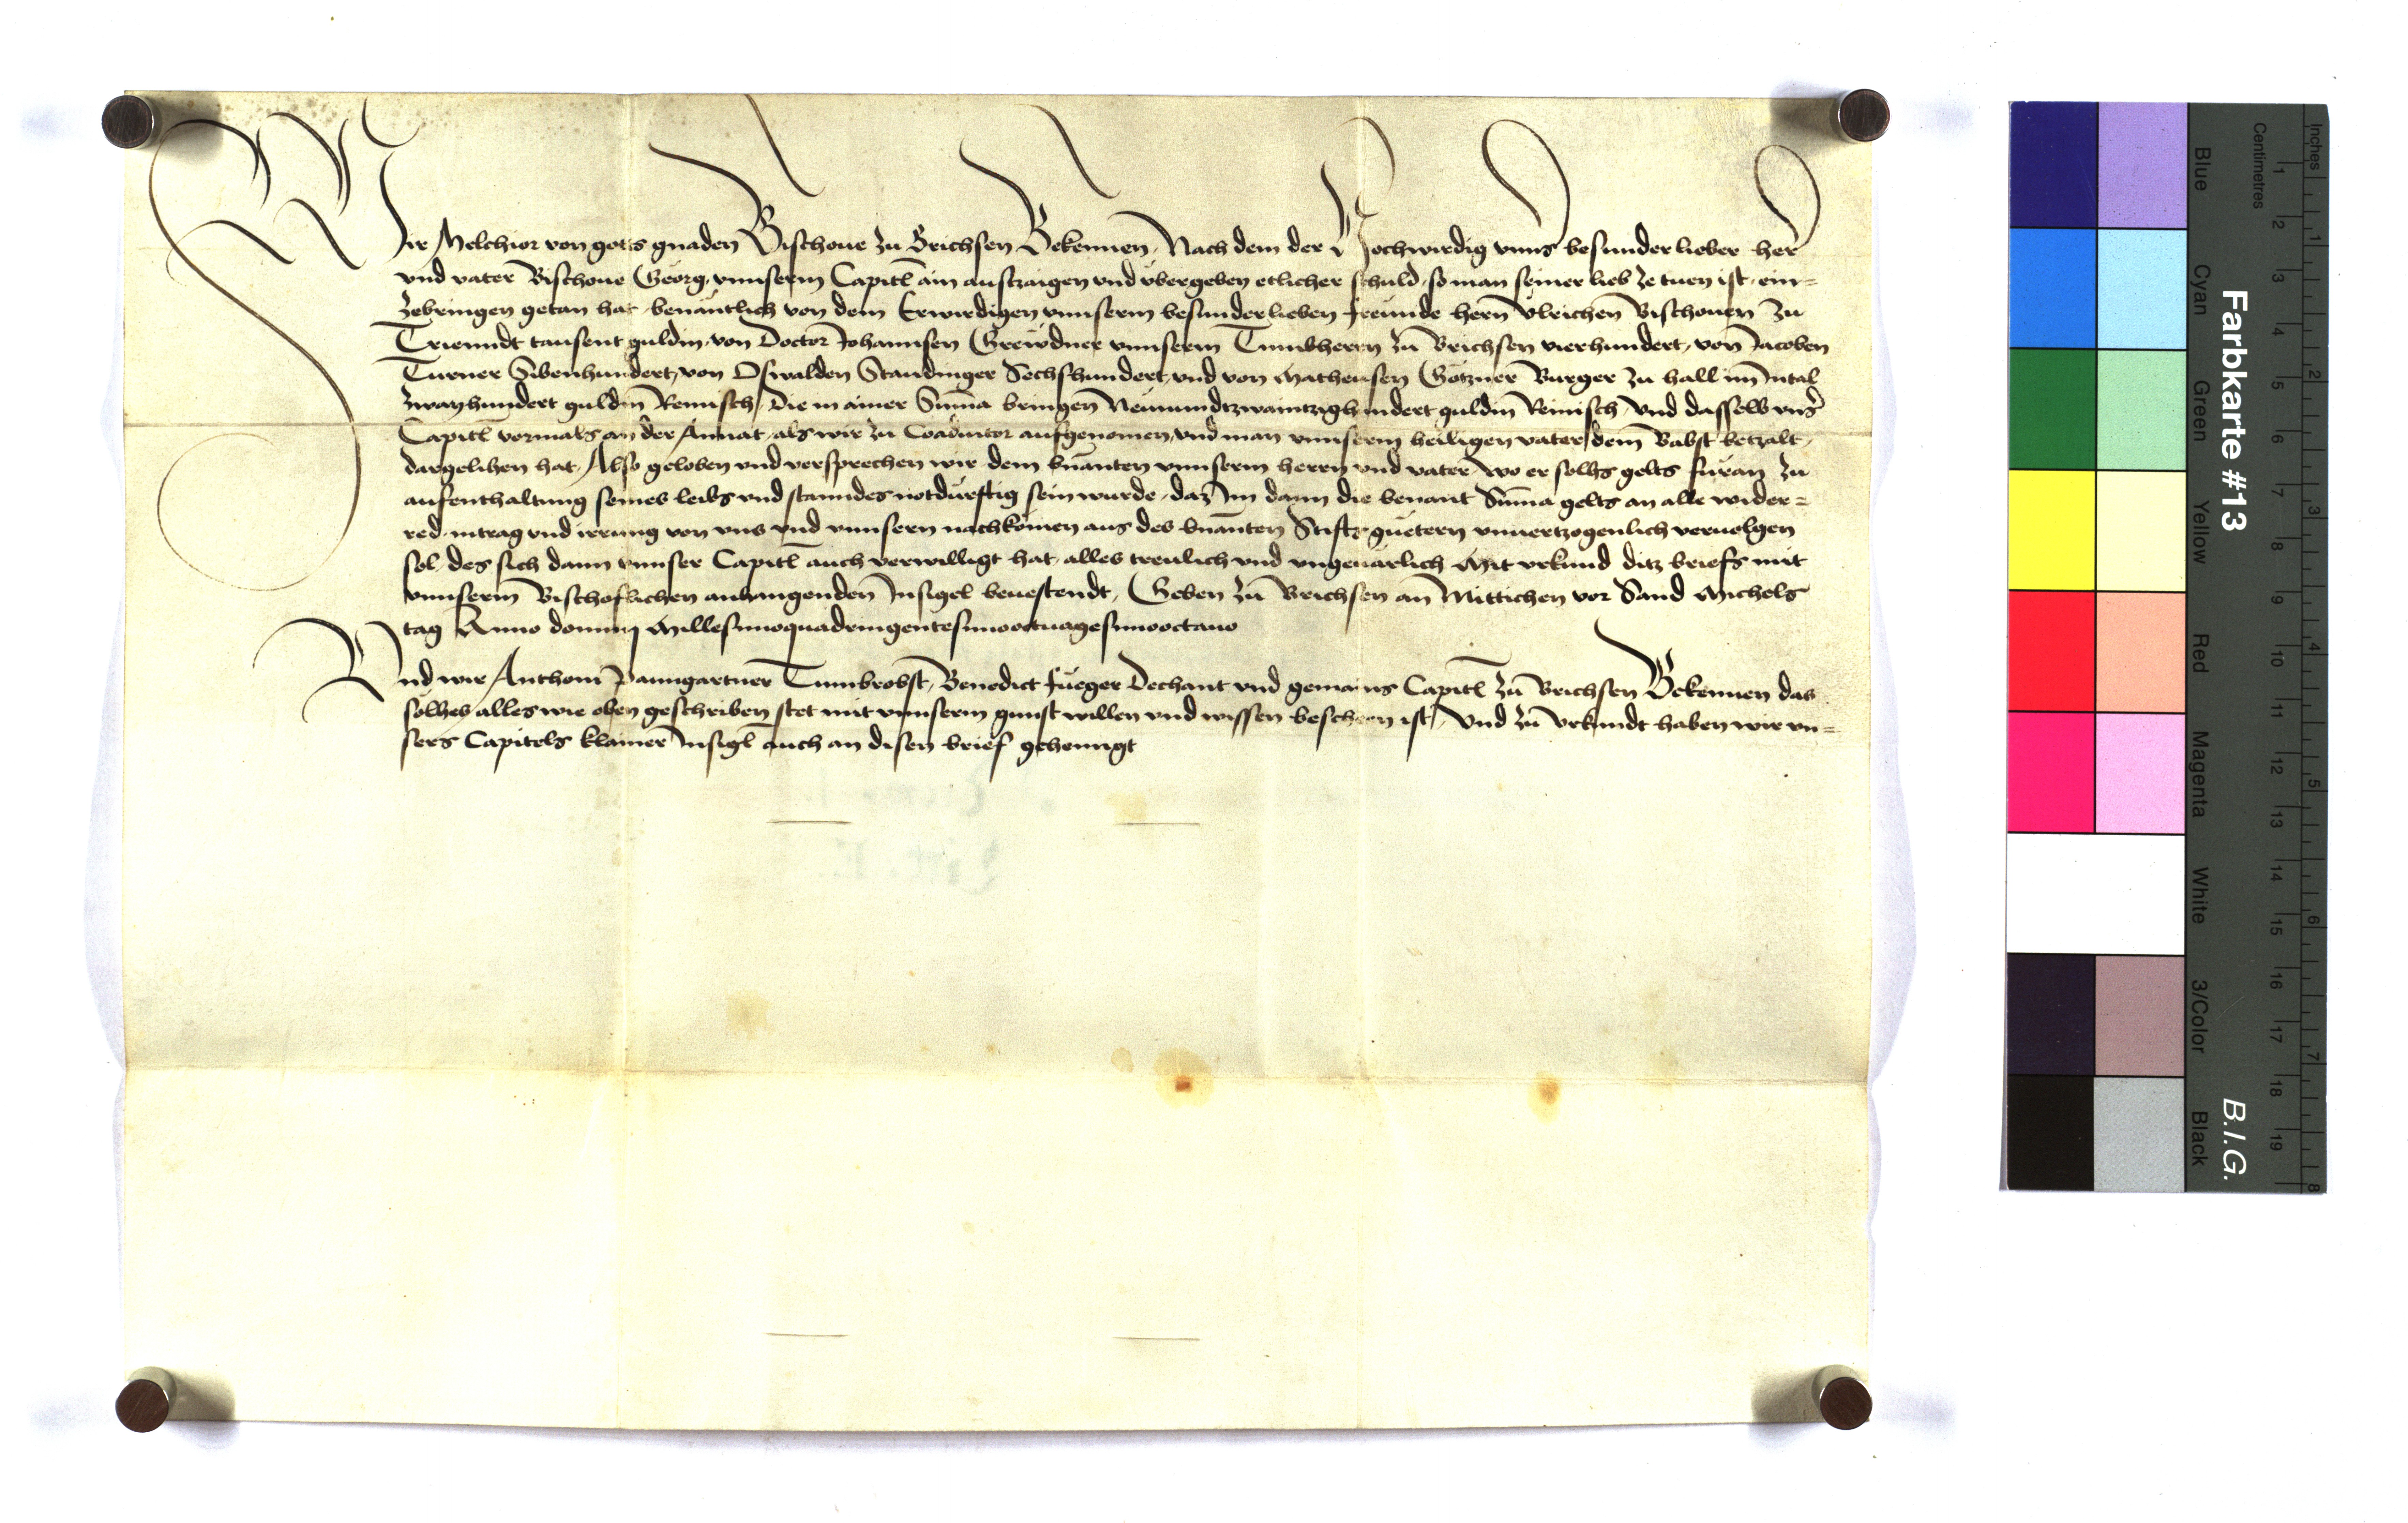 Wir Melchior von gots gnaden Bischoue zu Brichsen Bekennen, Nach dem der Hochwirdig vnns besunder lieber her
vnd vater Bischoue Georg, vnnserm Capitl ain austzaigen vnd vbergeben etlicher schuld, so man seiner lieb ze tuen ist, ein=
zebringen getan hat, benantlich von dem Erwirdigen vnnserm besunderlieben freunde hern Vlreichen Bischouen zu
Trienndt tausent guldin, von Doctor Johannsen Grewdner vnnserm Tumbherrn zu Brichsen vierhundert, von Jacoben
Turner Sibenhundert, von Oswalden Standinger Sechshundert, vnd von Matheusen Götzner Burger zu hall im Intal
zwayhundert guldin Reinisch, Die in ainer Suma bringen Neunundtzwaintzighundert guldin Reinisch, vnd dasselb vnser
Capitl vormals an der Annat, als wir zu Coadiutor aufgenomen, vnd man vnnserm heiligen vater dem Babst betzalt,
dargelihen hat, Also geloben vnd versprechen wir dem bnanten vnnserm herrn vnd vater, wo er solhs gelts furan zu
aufenthaltung seines leibs vnd stanndes notdurftig sein wurde, daz Im dann die benant Suma gelts an alle wider=
red, intrag vnd irrung von vns vnd vnnsern nachkomen aus des bnanten Stifts guetern vnuertzogenlich veruolgen
sol, des sich dann vnnser Capitl auch verwilligt hat, alles treulich vnd vngeuarlich Mit vrkund ditz briefs mit
vnnserm Bischoflichen anhangenden Insigel beuestendt, Geben zu Brichsen an Mittichen vor Sand Michels
tag Anno domini Millesimoquadringentesimooctuagesimooctauo
Vnd wir Anthoni Paumgartner Tumbrobst, Benedict Fueger Dechant vnd gemains Capitl zu Brichsen Bekennen das
solhes alles wie oben geschriben stet mit vnnserm gunst willen vnd wissen beschehen ist, Vnd zu Vrkundt haben wir vn=
sers Capitels klainer Insigl auch an disen brief gehenngt
Farbkarte #13
B.I.G.
Inches
Centimetres
1 2 3 4 5 6 7 8
1 2 3 4 5 6 7 8 9 10 11 12 13 14 15 16 17 18 19
Blue
Cyan
Green
Yellow
Red
Magenta
White
3/Color
Black